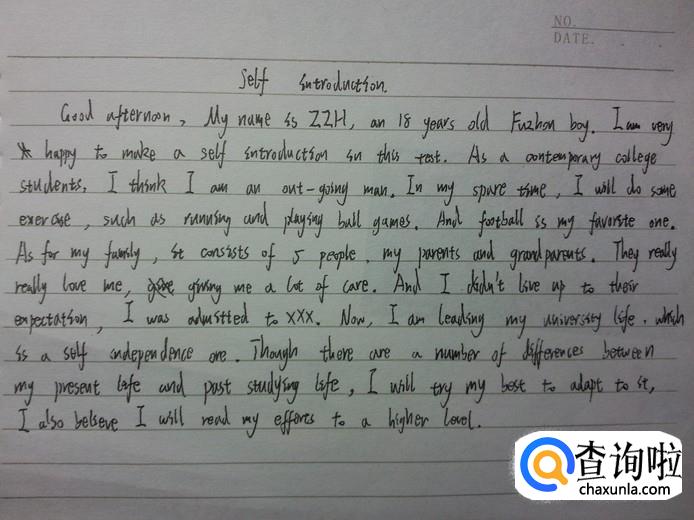 NO.
DATE.
Self introduction.
Good afternoon, My name is ZZH, an 18 years old Fuzhou boy. I am very
happy to make a self introduction in this test. As a contemporary college
students, I think I am an out-going man. In my spare time, I will do some
exercise, such as running and playing ball games. And football is my favorite one.
As for my family, it consists of 5 people, my parents and grandparents. They really
really love me, giving me a lot of care. And I didn't live up to their
expectation, I was admitted to XXX. Now, I am leading my university life, which
is a self independence one. Though there are a number of differences between
my present life and past studying life, I will try my best to adapt to it,
I also believe I will read my efforts to a higher level.
查询啦
chaxunla.com